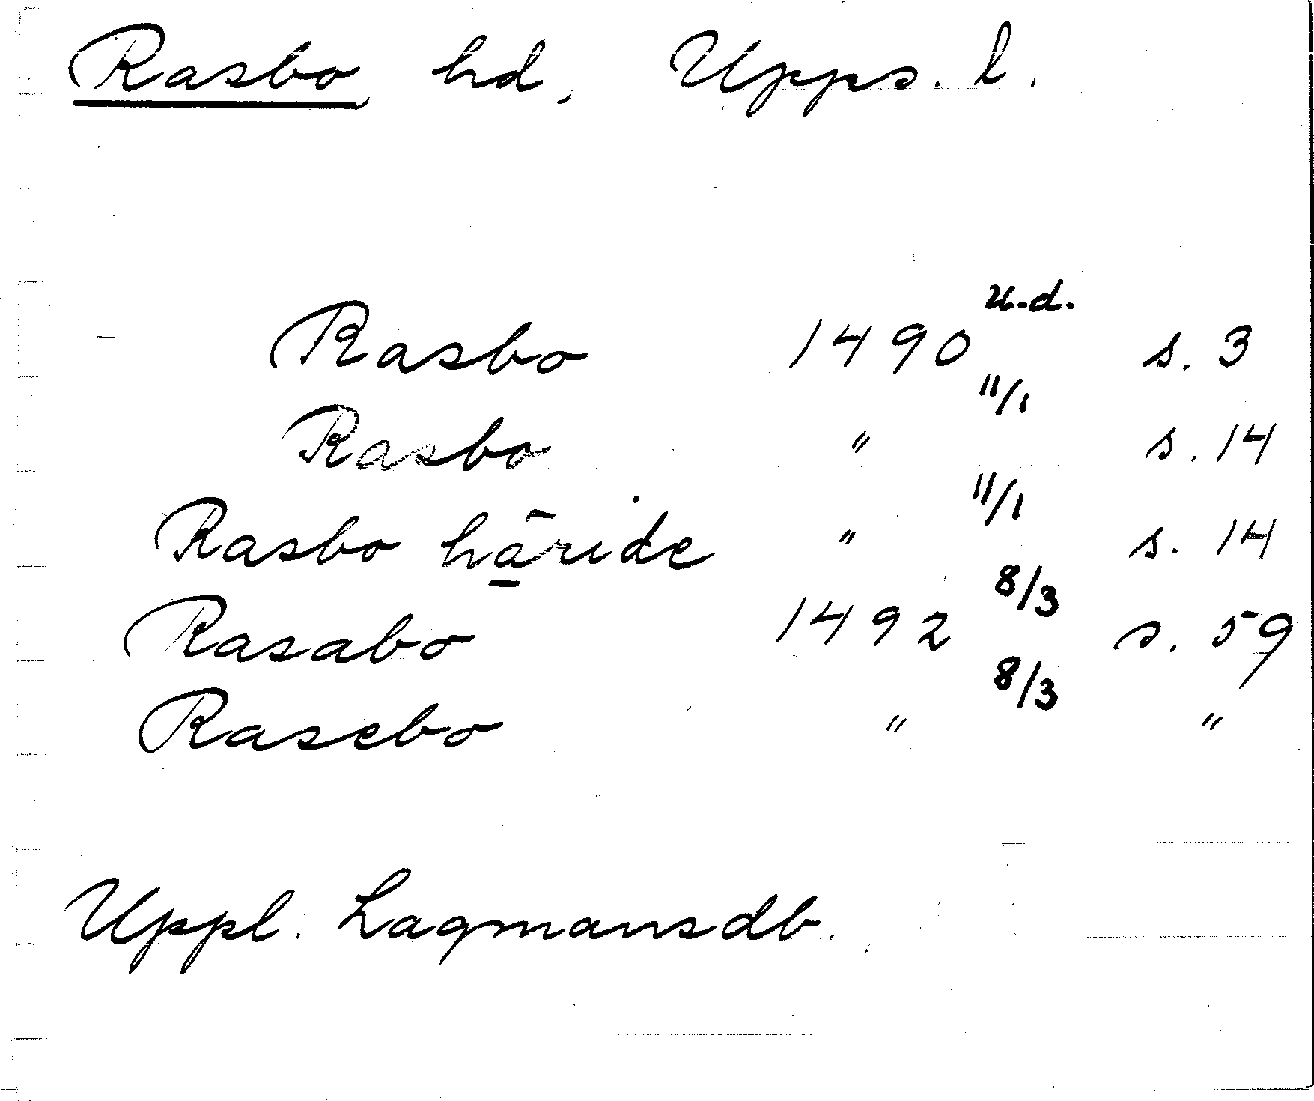 Rasbo hd, Upps. l.
Rasbo 1490 u.d. s. 3
Rasbo " 11/1 s. 14
Rasbo häride " 11/1 s. 14
Rasabo 1492 8/3 s. 59
Rasebo " 8/3 "
Uppl. Lagmansdb.